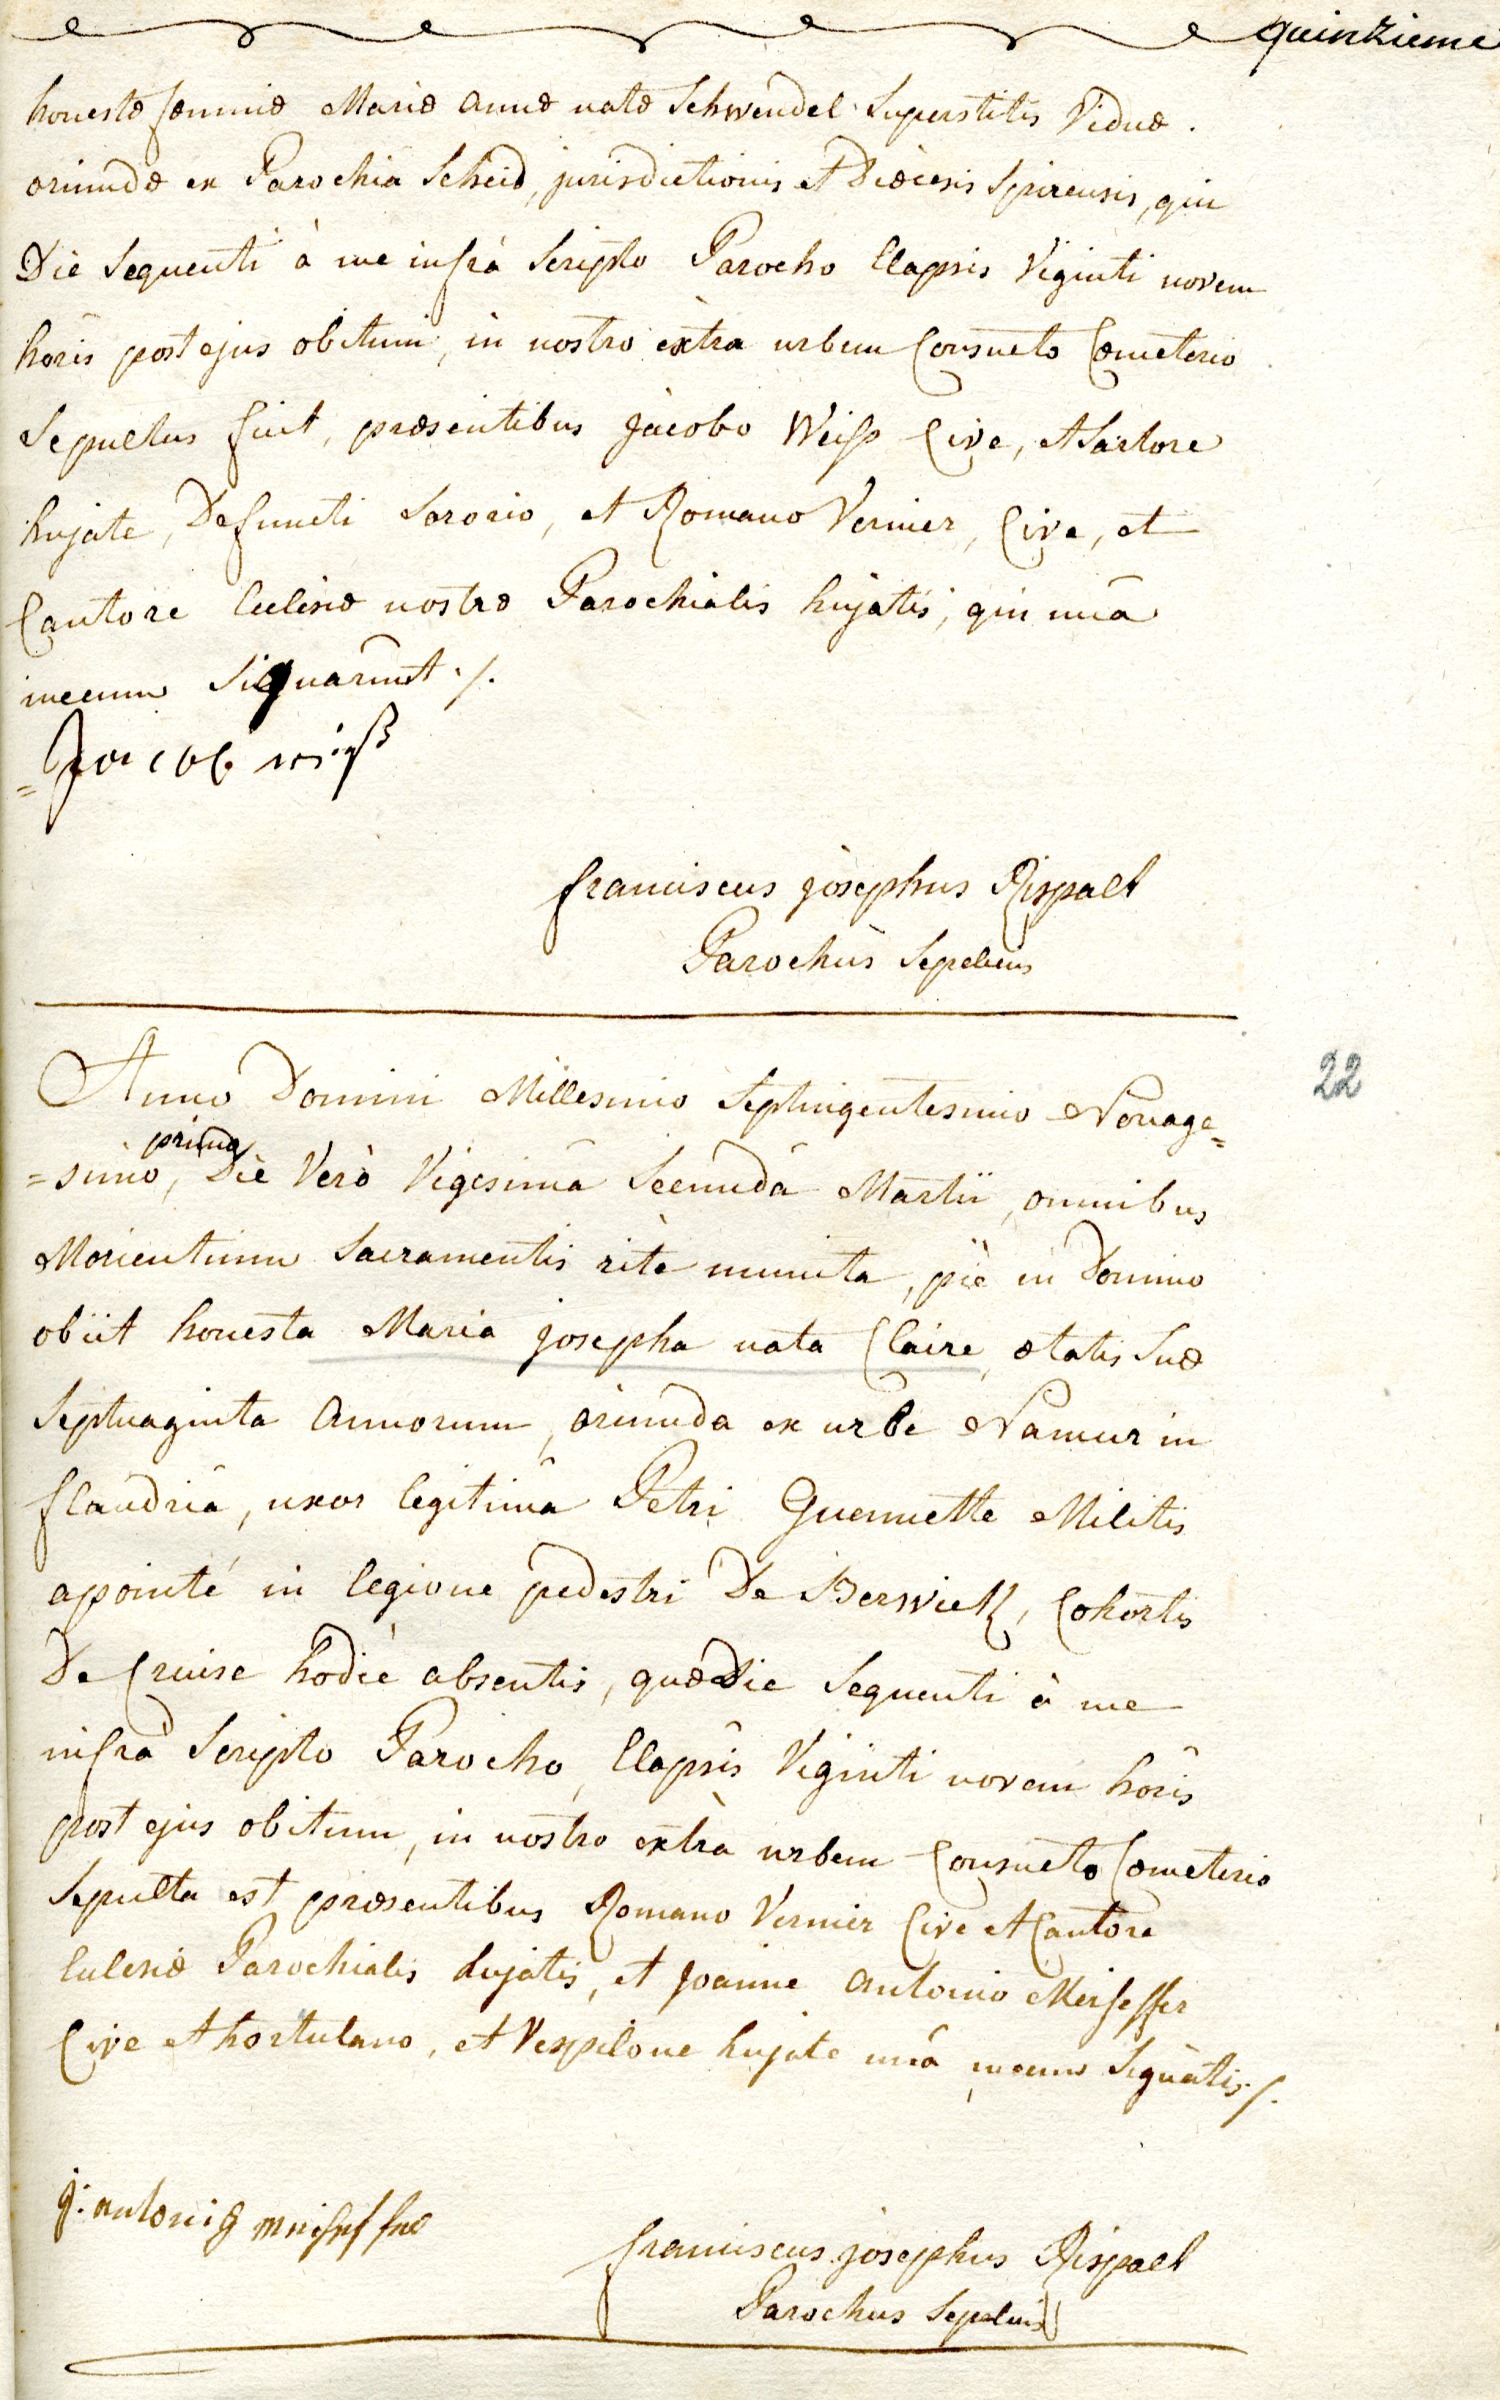 quinzieme
honestæ fœminæ Mariæ Annæ natæ Schwendel Superstitis Viduæ.
oriundæ ex Parochia Scheid, jurisdictionis et Diœcesis Spirensis, qui
Die Sequenti à me infrà Scripto Parocho Elapsis Viginti novem
horis post ejus obitum, in nostro extra urbem Consueto Cœmeterio
Sepultus fuit, præsentibus jacobo Weiss Cive, et Sartore
hujate, Defuncti Sororio, et Romano Vernier, Cive, et
Cantore Ecclesiæ nostræ Parochialis hujatis, qui unâ
mecum Signarunt ./.
= Jacob weiß
franciscus josephus Rispalt
Parochus Sepeliens
22
Anno Domini Millesimo Septingentesimo Nonage=
=simo, primo Die Verò Vigesimâ Secundâ Martii, omnibus
Morientium Sacramentis ritè munita, piè in Domino
obiit honesta Maria josepha nata Claire, ætatis Suæ
Septuaginta Annorum, oriunda ex urbe Namur in
flandriâ, uxor legitima Petri Guennette Militis
apointé in legione pedestri De Berwick, Cohortis
De Cruise hodiè absentis, quæ Die Sequenti à me
infrà Scripto Parocho, Elapsis Viginti novem horis
post ejus obitum, in nostro extrà urbem Consueto Cœmeterio
Sepulta est præsentibus Romano Vernier Cive et Cantore
Ecclesiæ Parochialis hujatis, et Joanne Antonio Meiseffer
Cive et hortulano, et Vespilone hujate unâ mecum Signatis ./.
j. antonig meiseffer
franciscus josephus Rispalt
Parochus Sepeliens